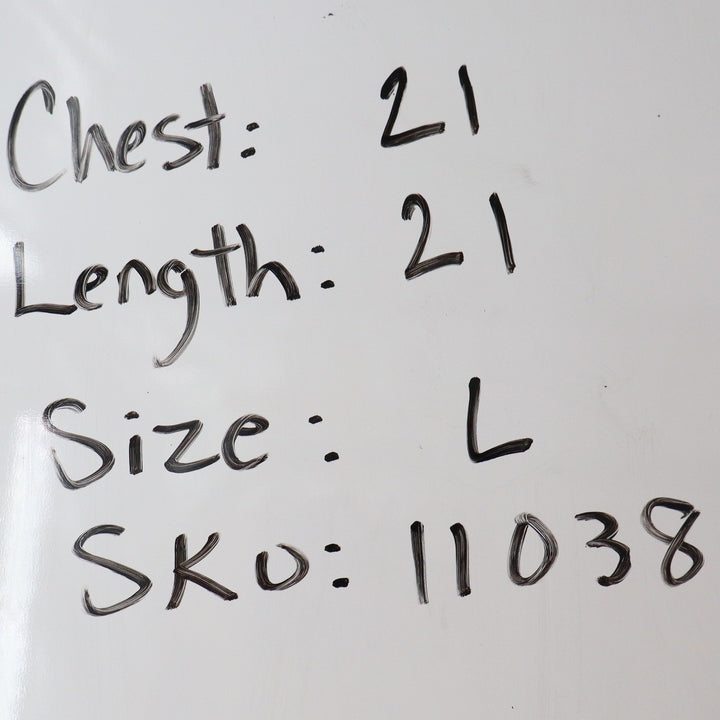 Chest: 21
Length: 21
Size: L
SKU: 11038